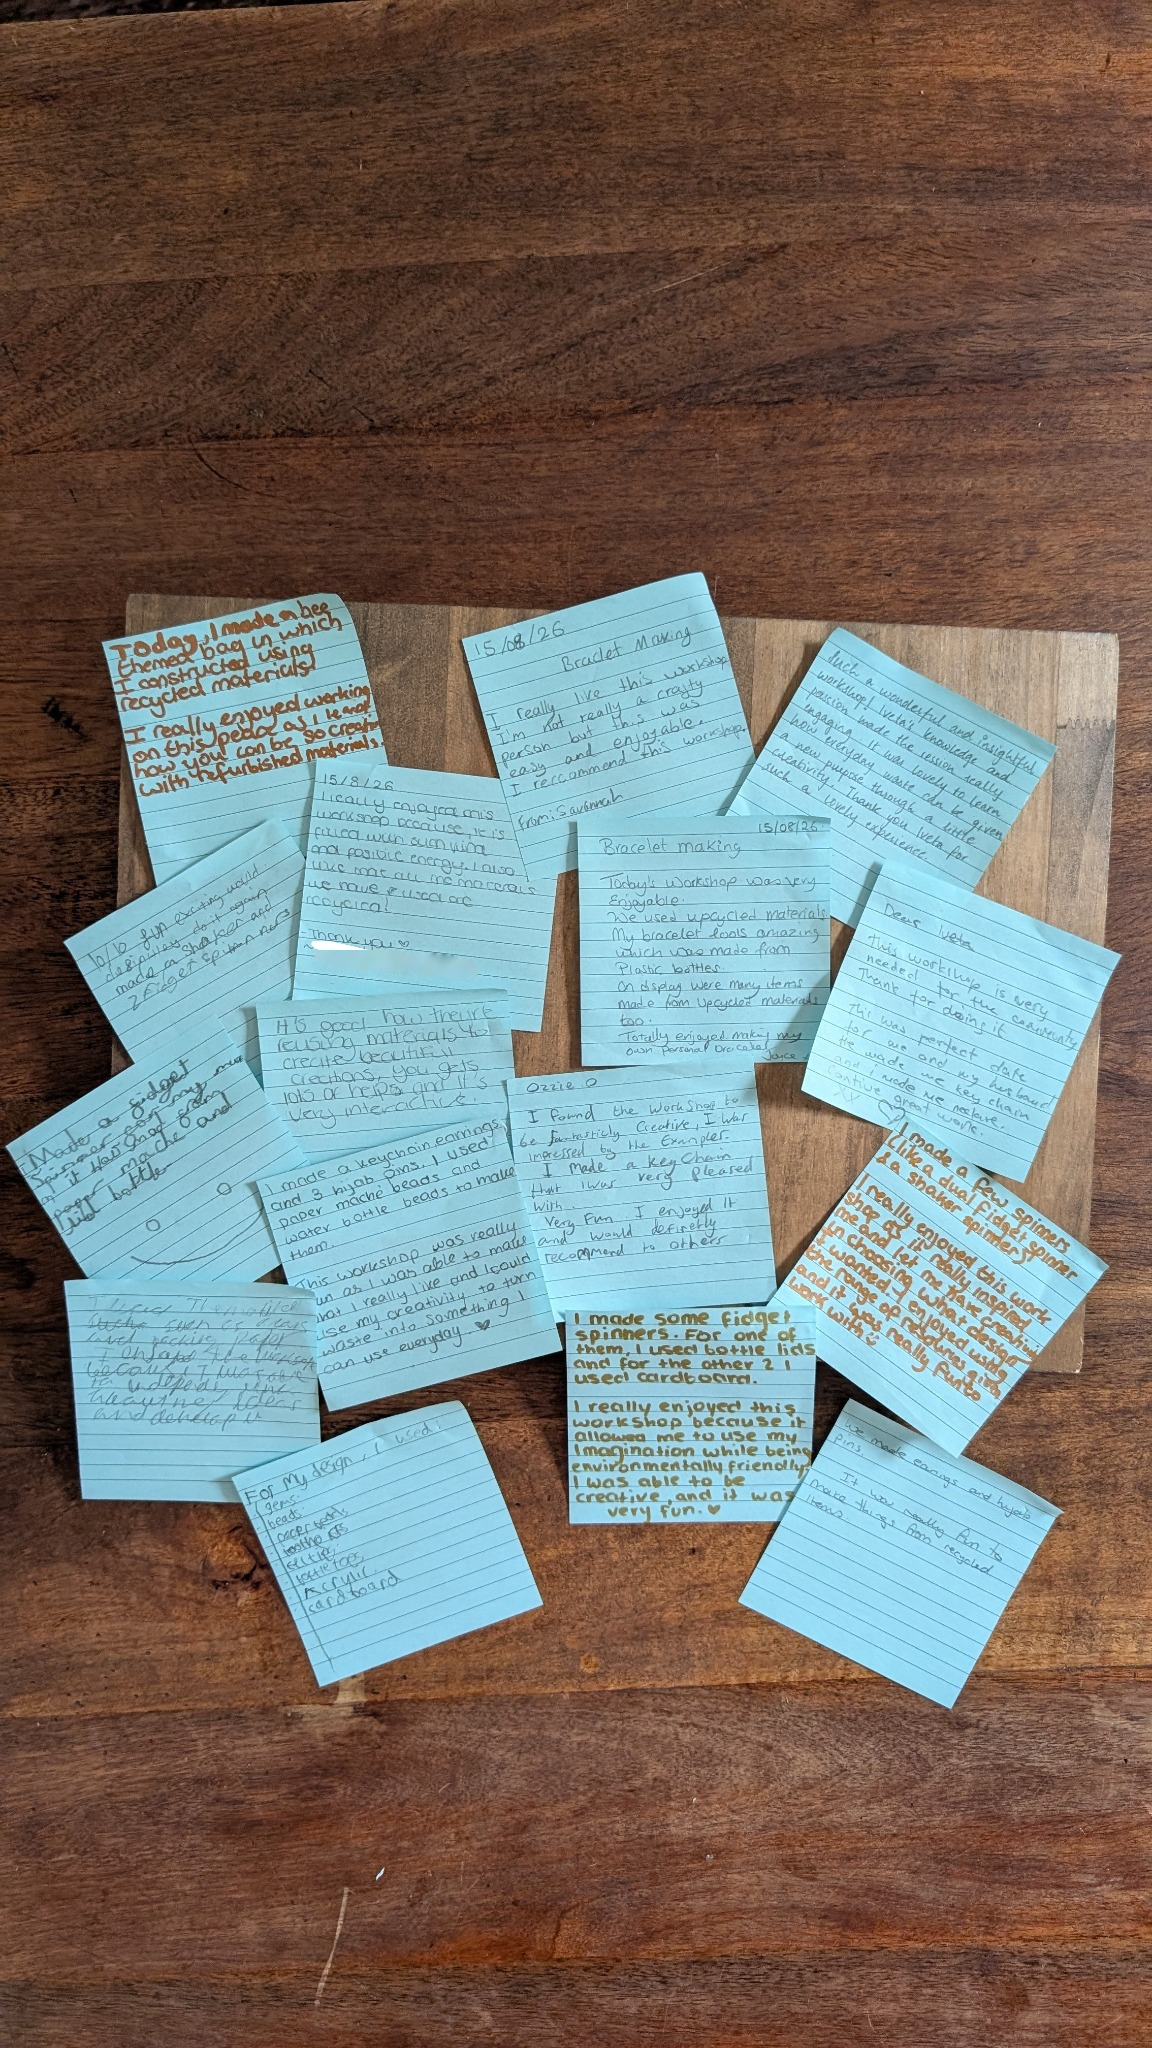 Today, I made a bee
themed bag in which
I constructed using
recycled materials!
I really enjoyed working
on this peace as I learnt
how you can be so creative
with refurbished materials.
15/08/26
Braclet Making
I really like this workshop
I'm not really a crafty
person but this was
easy and enjoyable.
I reccomend this workshop.
from: Savannah
Such a wonderful and insightful
workshop! Iveta's knowledge and
passion made the session really
engaging. It was lovely to learn
how everyday waste can be given
a new purpose through a little
creativity. Thank you Iveta for
such a lovely experience.
15/8/26
I really enjoyed this
workshop because, it is
filled with
and positive energy. I also
like that all the materials
we have used are
recycled!
Thank you ♡
15/08/26
Bracelet making
Today's workshop was very
Enjoyable.
We used upcycled materials
My bracelet looks amazing
which was made from
Plastic bottles.
On display were many items
made from upcycled materials
too.
Totally enjoyed making my
own personal bracelet
Joyce
10/10 fun exciting would
definitley do it again
made a shaker and
2 Fidget Spinners
Dear Iveta
This workshop is very
needed for the community
Thank for doing it
This was perfect date
for me and my husband
He made me key chain
and i made me neclare.
Contiue great work.
It's good how they're
reusing materials to
create beautiful
creations, you get
lots of help and it's
very interactive.
Made a fidget
spinner
it
paper mache and
bottle
I made a keychain, earrings,
and 3 hijab pins. I used
paper mache beads and
water bottle beads to make
them.
This workshop was really
fun as I was able to make
what I really like and I could
use my creativity to turn
waste into something I
can use everyday. ♥
Ozzie O
I found the workshop to
be fantasticly Creative, I was
impressed by the Examples.
I made a keychain
that I was very pleased
with.
Very Fun. I enjoyed it
and would definetly
recommend to others
I made a few spinners
(like a dual fidget spinner
& a shaker spinner)!
I really enjoyed this work
shop as it really inspired
me and let me have creativity
in choosing what design
I wanted. I enjoyed using
the range of resources given
and it was really fun to
work with ☺
such as
and
I enjoyed the
because I was able
to
ideas
and develop it
I made some fidget
spinners. For one of
them, I used bottle lids
and for the other 2 I
used cardboard.
I really enjoyed this
workshop because it
allowed me to use my
imagination while being
environmentally friendly.
I was able to be
creative, and it was
very fun. ♥
For my design, I used:
gems
beads
paper beads
bottle caps
glitter
Acrylic
cardboard
We made earings and hijab
pins.
It was really fun to
make things from recycled
items.